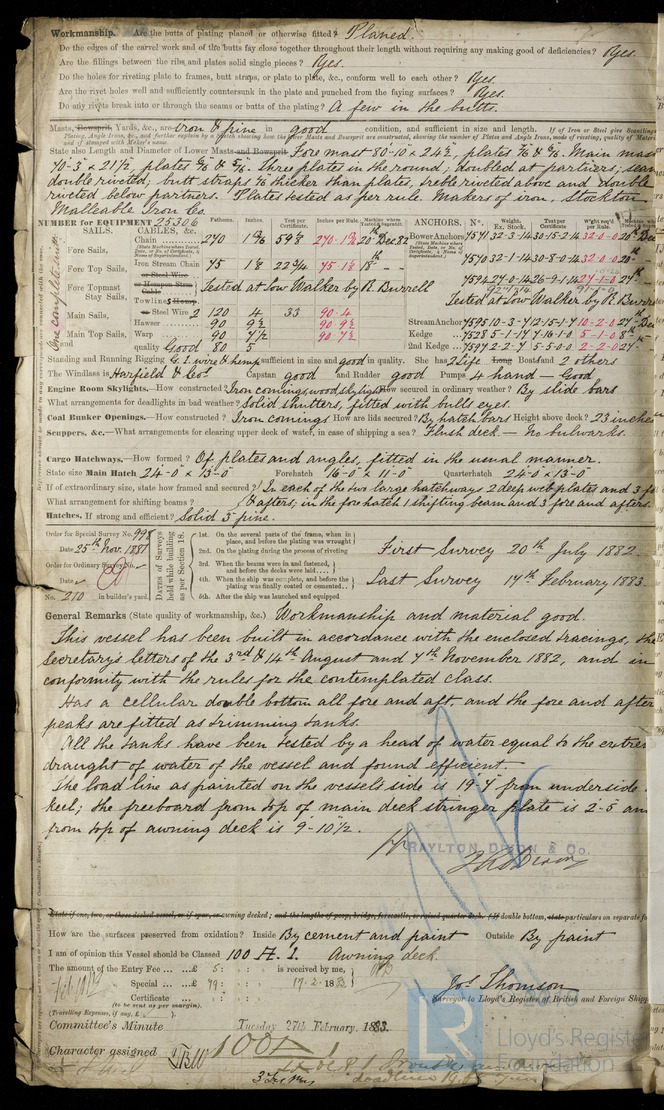 Workmanship. Are the butts of plating planed or otherwise fitted? Planed.
Do the edges of the carvel work and of the butts fay close together throughout their length without requiring any making good of deficiencies? Yes.
Are the fillings between the ribs and plates solid single pieces? Yes.
Do the holes for riveting plate to frames, butt straps, or plate to plate, &c., conform well to each other? Yes.
Are the rivet holes well and sufficiently countersunk in the plate and punched from the faying surfaces? Yes.
Do any rivets break into or through the seams or butts of the plating? A few in the butts.
Masts, Bowsprit, Yards, &c., are Iron & pine in good condition, and sufficient in size and length. If of Iron or Steel give Scantlings
Plating, Angle Irons, &c., and further explain by a sketch showing how the lower Masts and Bowsprit are constructed, showing the number of Plates and Angle Irons, mode of riveting, quality of Mater
and if stamped with Maker's name.
State also Length and Diameter of Lower Masts and Bowsprit Fore mast 80-10 x 24½, plates 7/16 & 6/16. Main mast
70-3 x 21½, plates 6/16 & 5/16. Three plates in the round; doubled at partners, seam
double riveted; butt straps 1/16 thicker than plates, treble riveted above and double
riveted below partners. Plates tested as per rule. Makers of iron, Stockton
Malleable Iron Co.
NUMBER for EQUIPMENT 25306
SAILS. CABLES, &c. Fathoms. Inches. Test per Certificate. Inches per Rule. ANCHORS. No. Weight. Ex. Stock. Test per Certificate
Chain 270 1 59⅛ 270- 20th Dec 82 Bower Anchors 7571 32-3-14 30-15-2-14 32-0-0 20th Dec
Fore Sails, 7570 32-1-14 30-8-2-14 32-0-0 20th
Fore Top Sails, Iron Stream Chain 75 1⅛ 22¾ 75-1⅛ 18th
or Steel Wire
or Hempen Strm Cable Tested at Low Walker by R Burrell
Fore Topmast Stay Sails, Towlines Hemp.
Tested at Low Walker by R Burre
Main Sails, or Steel Wire 2 120 4 33 90-4
Hawser 90 9½ 90 9½
Main Top Sails, Warp 90 7½ 90 7½
and quality Good 80 5
Stream Anchor 7595 10-3-7 12-15-1-7 10-2-0 27th Dec
Kedge 7528 5-1-17 7-16-1-0 5-1-0 8th
2nd Kedge
Standing and Running Rigging G. I. wire & hemp sufficient in size and good in quality. She has 2 Life Long Boats and 2 others
The Windlass is Harfield & Cos Capstan good and Rudder good Pumps 4 hand — Good
Engine Room Skylights.—How constructed? Iron comings, wood skylight How secured in ordinary weather? By slide bars
What arrangements for deadlights in bad weather? Solid shutters, fitted with bulls eyes.
Coal Bunker Openings.—How constructed? Iron comings How are lids secured? By hatch bars Height above deck? 23 inches
Scuppers, &c.—What arrangements for clearing upper deck of water, in case of shipping a sea? Flush deck — No bulwarks.
Cargo Hatchways.—How formed? Of plates and angles, fitted in the usual manner.
State size Main Hatch 24-0 x 13-0 Forehatch 16-0 x 11-0 Quarterhatch 24-0 x 13-0
If of extraordinary size, state how framed and secured? In each of the two large hatchways 2 deep web plates and 3 fo
What arrangement for shifting beams? & afters; in the fore hatch 1 shifting beam and 3 fore and afters.
Hatches. If strong and efficient? Solid 3 pine.
Order for Special Survey No. 998
Date 25th Nov. 1881
Order for Ordinary Survey No.
Date
No. 210 in builder's yard.
DATES of Surveys held while building as per Section 18.
1st. On the several parts of the frame, when in place, and before the plating was wrought
2nd. On the plating during the process of riveting
3rd. When the beams were in and fastened, and before the decks were laid
4th. When the ship was complete, and before the plating was finally coated or cemented
5th. After the ship was launched and equipped
First Survey 20th July 1882
Last Survey 17th February 1883
General Remarks (State quality of workmanship, &c.) Workmanship and material good.
This vessel has been built in accordance with the enclosed tracings, the
Secretary's letters of the 3rd & 14th August and 7th November 1882, and in
conformity with the rules for the contemplated class.
Has a cellular double bottom all fore and aft, and the fore and after
peaks are fitted as trimming tanks.
All the tanks have been tested by a head of water equal to the extreme
draught of water of the vessel and found efficient.
The load line as painted on the vessels side is 19-7 from underside
keel; the freeboard from top of main deck stringer plate is 2-5 an
from top of awning deck is 9-10½.
RAYLTON DIXON & Co.
State if one, two, or three decked vessel, or if spar, or awning decked; and the lengths of poop, bridge, forecastle, or raised quarter deck. If double bottom, state particulars on separate fo
How are the surfaces preserved from oxidation? Inside By cement and paint Outside By paint
I am of opinion this Vessel should be Classed 100 A. 1. Awning deck.
The amount of the Entry Fee £ 5 : : is received by me,
Special £ 79 : : 17.2.1883
Certificate
(to be sent as per margin).
(Travelling Expenses, if any, £ ).
Jos Thomson
Surveyor to Lloyd's Register of British and Foreign Shipp
Committee's Minute Tuesday 27th February, 1883.
Character assigned 100A1
Lloyd's Register
Foundation